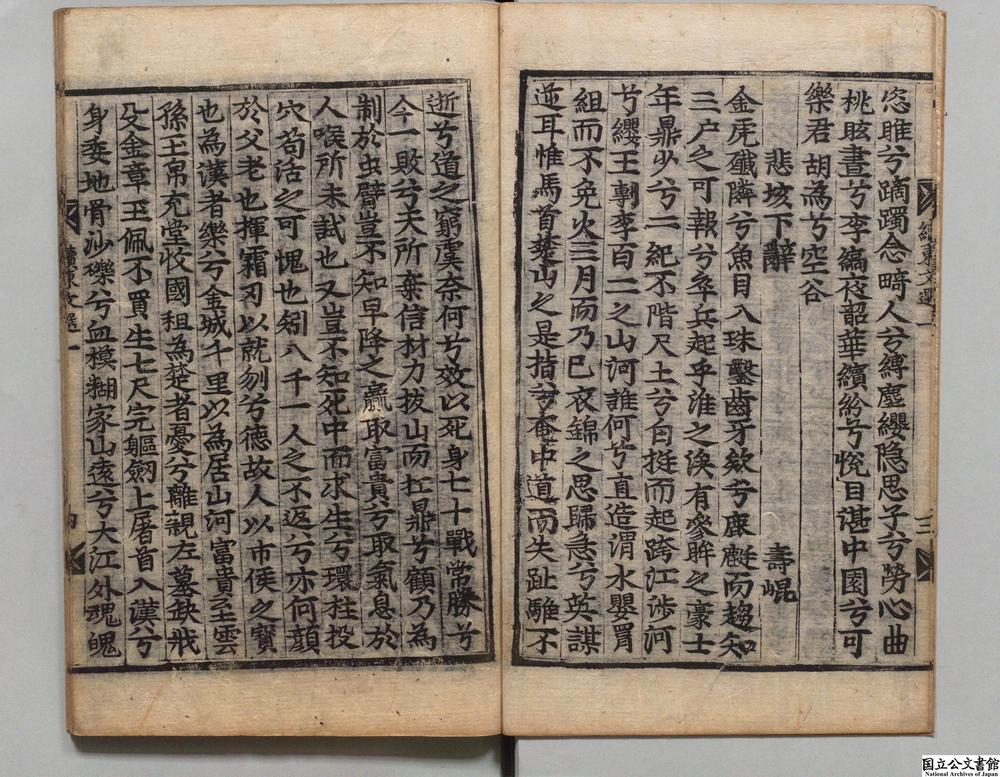 恣雎兮躑躅念疇人兮縛塵纓隐思子兮勞心曲
桃眩晝兮李縞夜韶華繽紛兮悅目諶中園兮可
樂君胡為兮空谷
悲垓下辭 壽崐
金虎殲隣兮魚目入珠鑿齒牙欻兮鹿
而趨知
三户之可報兮卒兵起乎淮之渙有參眸之豪士
年鼎少兮二紀不階尺土兮白挺而起跨江涉河
兮纓王剸李百二之山河誰何兮直造渭水嬰罥
組而不免火三月而乃已衣錦之思歸急兮英謀
逆耳惟馬首楚山之是指兮奄中道而失趾騅不
逝兮道之窮虞奈何兮效以死身七十戰常勝兮
今一敗兮天所棄信材力拔山而扛鼎兮顧乃為
制於虫臂豈不知早降之贏取富貴兮取氣息於
人喉所未試也又豈不知死中而求生兮環柱投
穴苟活之可愧也矧八千一人之不返兮亦何顔
於父老也揮霜刃以就刎兮德故人以市侯之寶
也為漢者樂兮金城千里以為居山河富貴至雲
孫土帛充堂收國租為楚者憂兮離親左墓缺戕
殳金章玉佩不買生七尺完軀劒上屠首入漢兮
身委地骨沙礫兮血模糊家山遠兮大江外魂魄
續東文選一
二
續東文選一
國立公文書館
National Archives of Japan